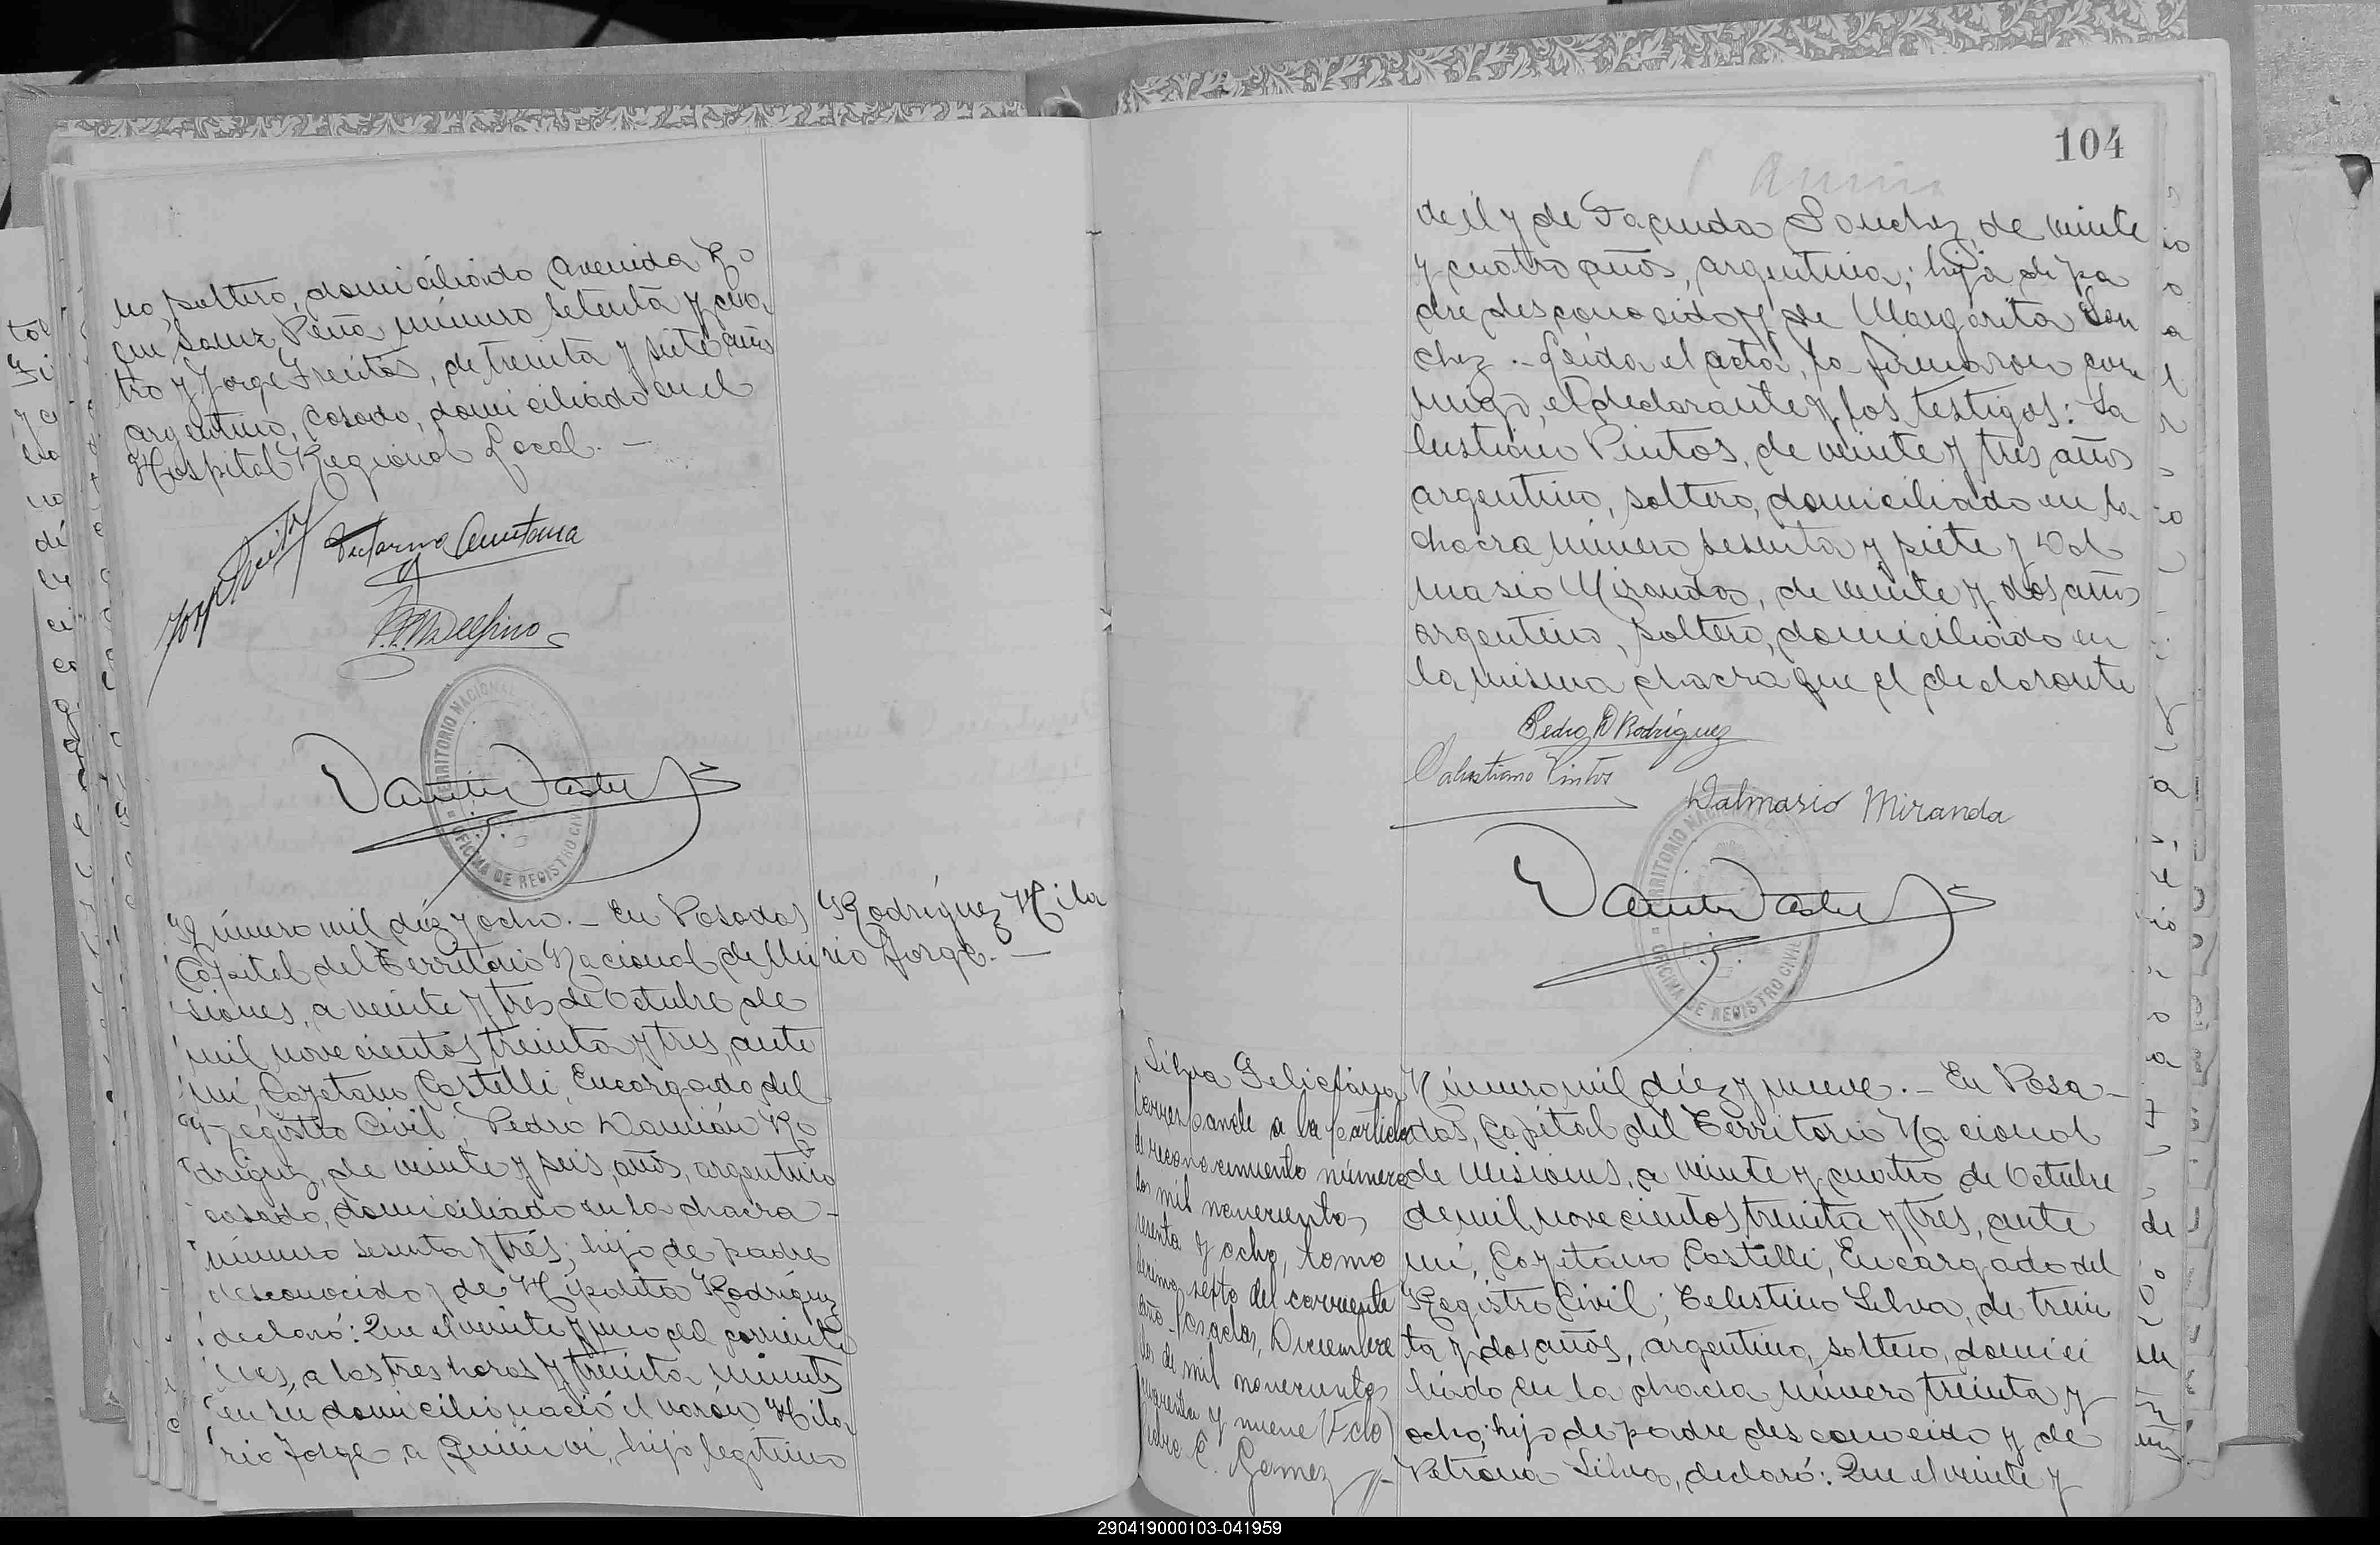 no, soltero, domiciliado Avenida Ro
que Saenz Peña número setenta y cua
tro y Jorge Freitas, de treinta y siete años
argentino, casado, domiciliado en el
Hospital Regional Local. —
Victorino Quintana
TERRITORIO NACIONAL
OFICINA DE REGISTRO CIVIL
Número mil diéz y ocho. — En Posadas
Capital del Territorio Nacional de Mi
siones, a veinte y tres de Octubre de
mil novecientos treinta y tres, ante
mí, Cayetano Castelli, Encargado del
Registro Civil; Pedro Damián Ro
driguez, de veinte y seis, años, argentino
casado, domiciliado en la chacra —
número sesenta y trés; hijo de padre
desconocido y de Hipolita Rodríguez
declaró: Que el veinte y uno del corriente
mes, a las tres horas y treinta minutos
en su domicilio nació el varón Hila
rio Jorge, a quien ví, hijo legítimo
Rodríguez Hila
rio Jorge. —
104
de él y de Facunda Sanchez, de veinte
y cuatro años, argentina; hija de pa
dre desconocido y de Margarita San
chez. — Leída el acta, la firmaron con
migo, el declarante y los testigos: Sa
lustiano Pintos, de veinte y tres años
argentino, soltero, domiciliado en la
chacra número sesenta y siete y Dal
masio Miranda, de veinte y dos años
argentino, soltero, domiciliado en
la misma chacra que el declarante
Pedro D Rodriguez
Salustiano Pintos
Dalmasio Miranda
TERRITORIO NACIONAL
OFICINA DE REGISTRO CIVIL
Silva Feliciana
Corresponde a la partida
de reconocimiento número
dos mil novecientos
sesenta y ocho, tomo
decimo septo del corriente
año. Posadas, Diciembre
dos de mil novecientos
cuarenta y nueve (Fdo)
Pedro C. Gomez
Número mil diéz y nueve. — En Posa —
das, Capital del Territorio Nacional
de Misiones, a veinte y cuatro de Octubre
de mil novecientos treinta y tres, ante
mí, Cayetano Castelli, Encargado del
Registro Civil; Celestino Silva, de trein
ta y dos años, argentino, soltero, domici
liado en la chacra número treinta y
ocho; hijo de padre desconocido y de
Petrona Silva, declaró: Que el veinte y
290419000103-041959